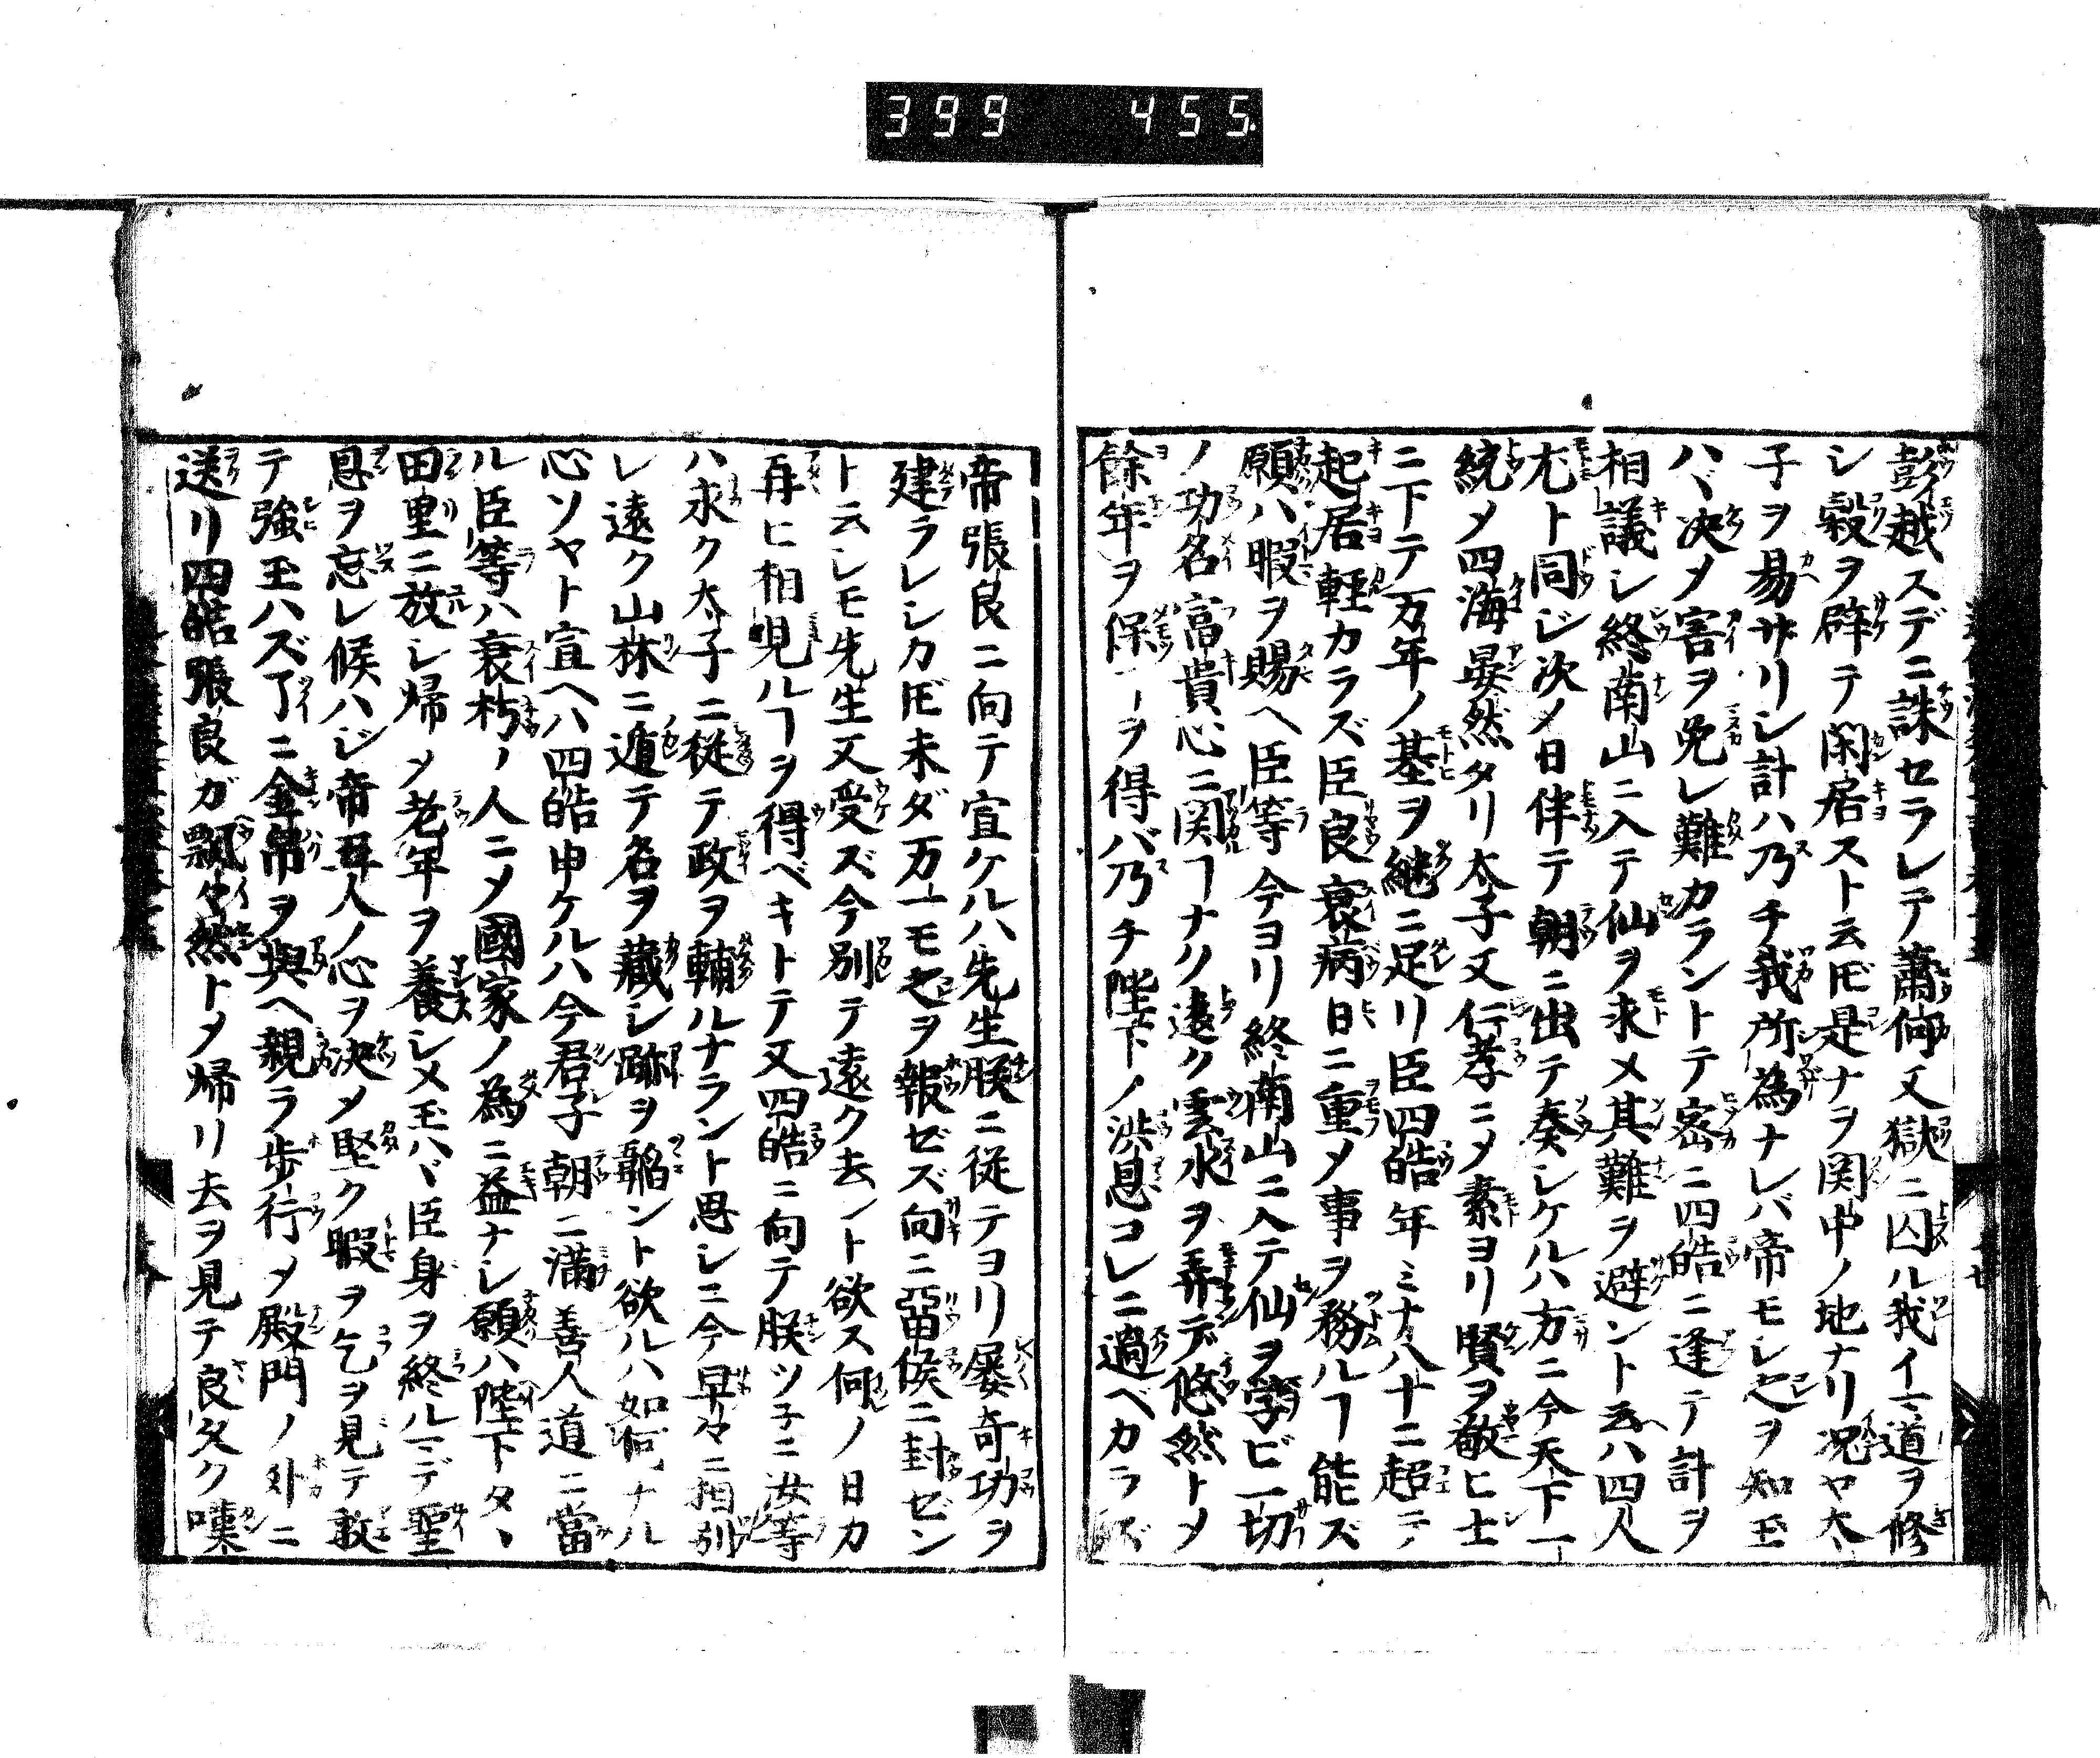 399 455
彭越スデニ誅セラレテ蕭何又獄ニ囚ル我イマ道ヲ修
シ穀ヲ辟テ閑居スト云𪜈是ナヲ関中ノ地ナリ况ヤ太
子ヲ易ザリシ計ハ乃チ我所為ナレバ帝モシ㔫ヲ知玉
ハヾ决メ害ヲ免レ難カラントテ密ニ四皓ニ逢テ計ヲ
相議シ終南山ニ入テ仙ヲ求メ其難ヲ避ント云ハ四人
尤ト同ジ次ノ日伴テ朝ニ出テ奏シケルハ方ニ今天下一
統メ四海晏然タリ太子又仁孝ニメ素ヨリ賢ヲ敬ヒ士
ニ下テ万年ノ基ヲ継ニ足リ臣四皓年ミナ八十ニ超テ
起居軽カラズ臣良衰病日ニ重メ事ヲ務ルヿ能ズ
願ハ暇ヲ賜ヘ臣等今ヨリ終南山ニ入テ仙ヲ学ビ一切
ノ功名富貴心ニ関ヿナク遠ク雲水ヲ弄デ悠然トメ
餘年ヲ保ヿヲ得バ乃チ陛下ノ洪恩コレニ過ベカラズ
帝張良ニ向テ宣ケルハ先生朕ニ従テヨリ屡奇功ヲ
建ラレシカ𪜈未ダ万一モ㔫ヲ報ゼズ向ニ留侯ニ封ゼン
ト云シモ先生又受ズ今別テ遠ク去ント欲ス何ノ日カ
再ヒ相見ルヿヲ得ベキトテ又四皓ニ向テ朕ツ子ニ汝等
ハ永ク太子ニ従テ政ヲ輔ルナラント思シニ今早々ニ相別
レ遠ク山林ニ遁テ名ヲ蔵シ跡ヲ韜ント欲ルハ如何ナル
心ソヤト宣ヘハ四皓申ケルハ今君子朝ニ満善人道ニ當
ル臣等ハ衰朽ノ人ニメ國家ノ為ニ益ナシ願ハ陛下タヽ
田里ニ放シ帰メ老年ヲ養シメ玉ハヾ臣身ヲ終ルマデ聖
恩ヲ忘レ候ハジ帝五人ノ心ヲ决メ堅ク暇ヲ乞ヲ見テ敢
テ強玉ハズ了ニ金帛ヲ與ヘ親ラ歩行メ殿門ノ外ニ
送リ四皓張良ガ飄々然トメ帰リ去ヲ見テ良久ク嘆